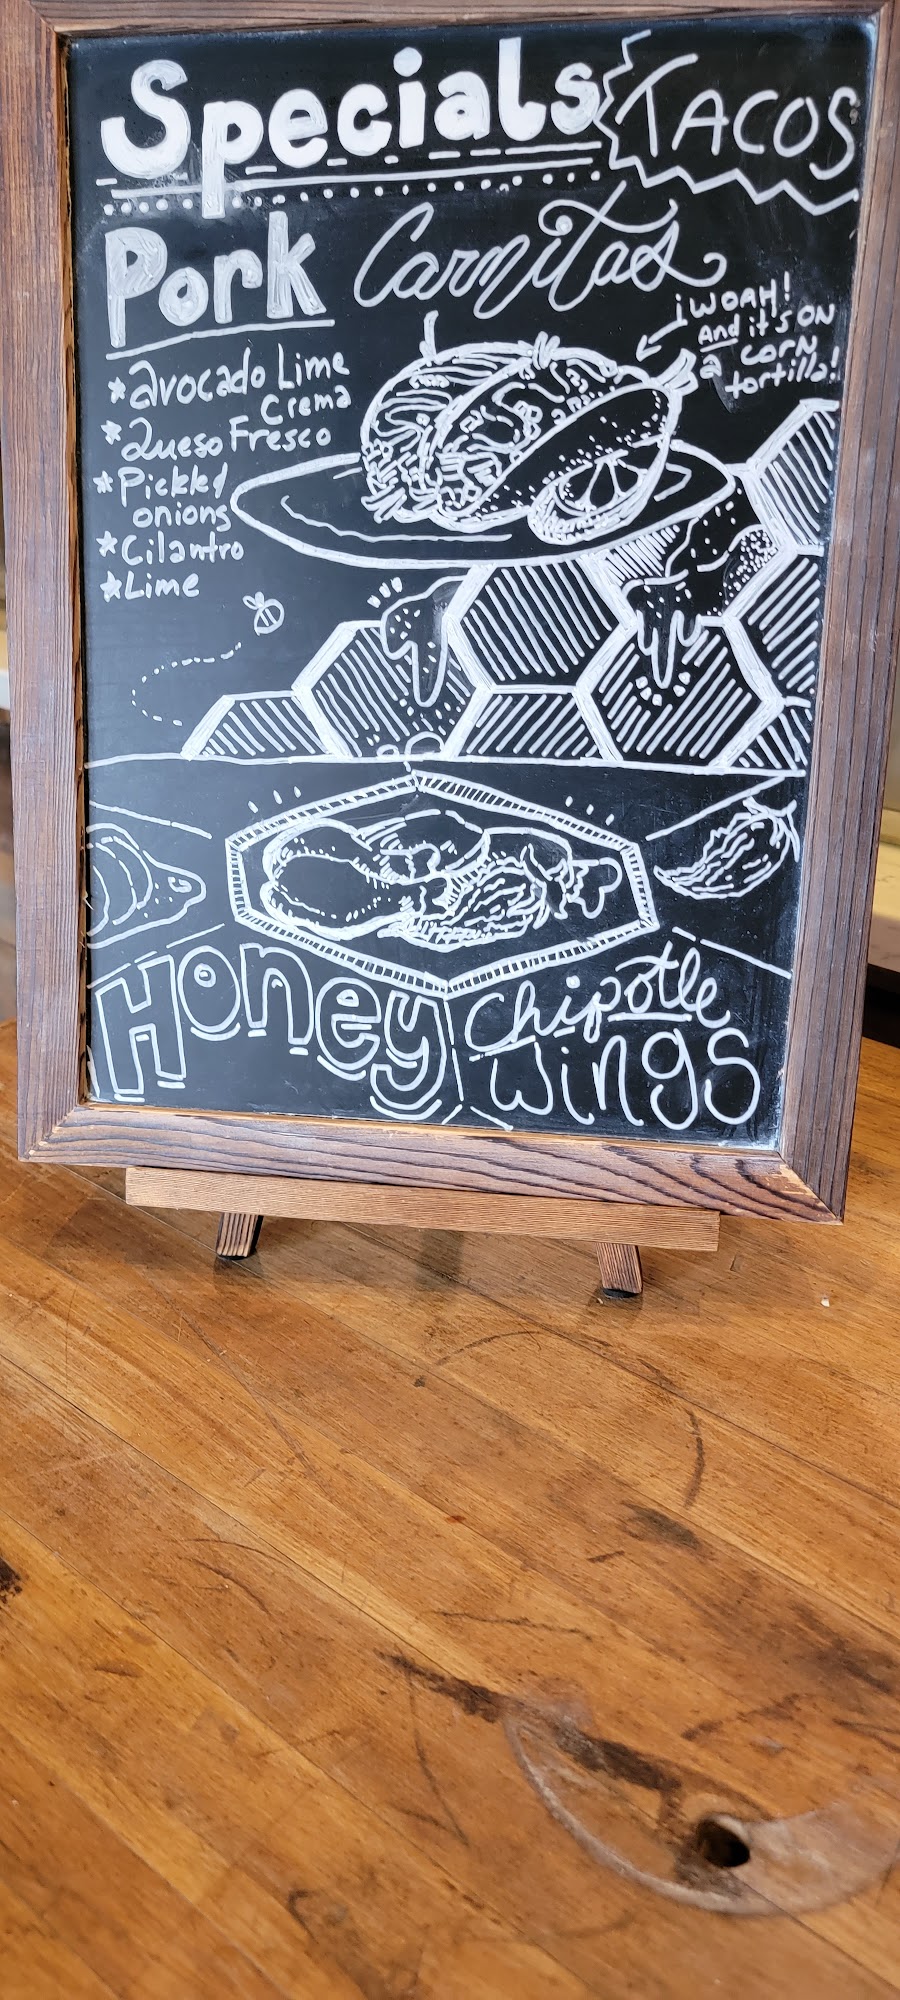 Specials TACOS
Pork Carnitas
¡WOAH!
And it's ON
a corn
tortilla!
*avocado Lime
Crema
*Queso Fresco
*Pickled
onions
*Cilantro
*Lime
Honey Chipotle
Wings